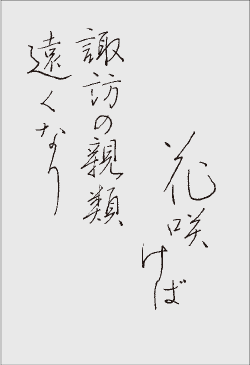 花咲けば
諏訪の親類
遠くなり